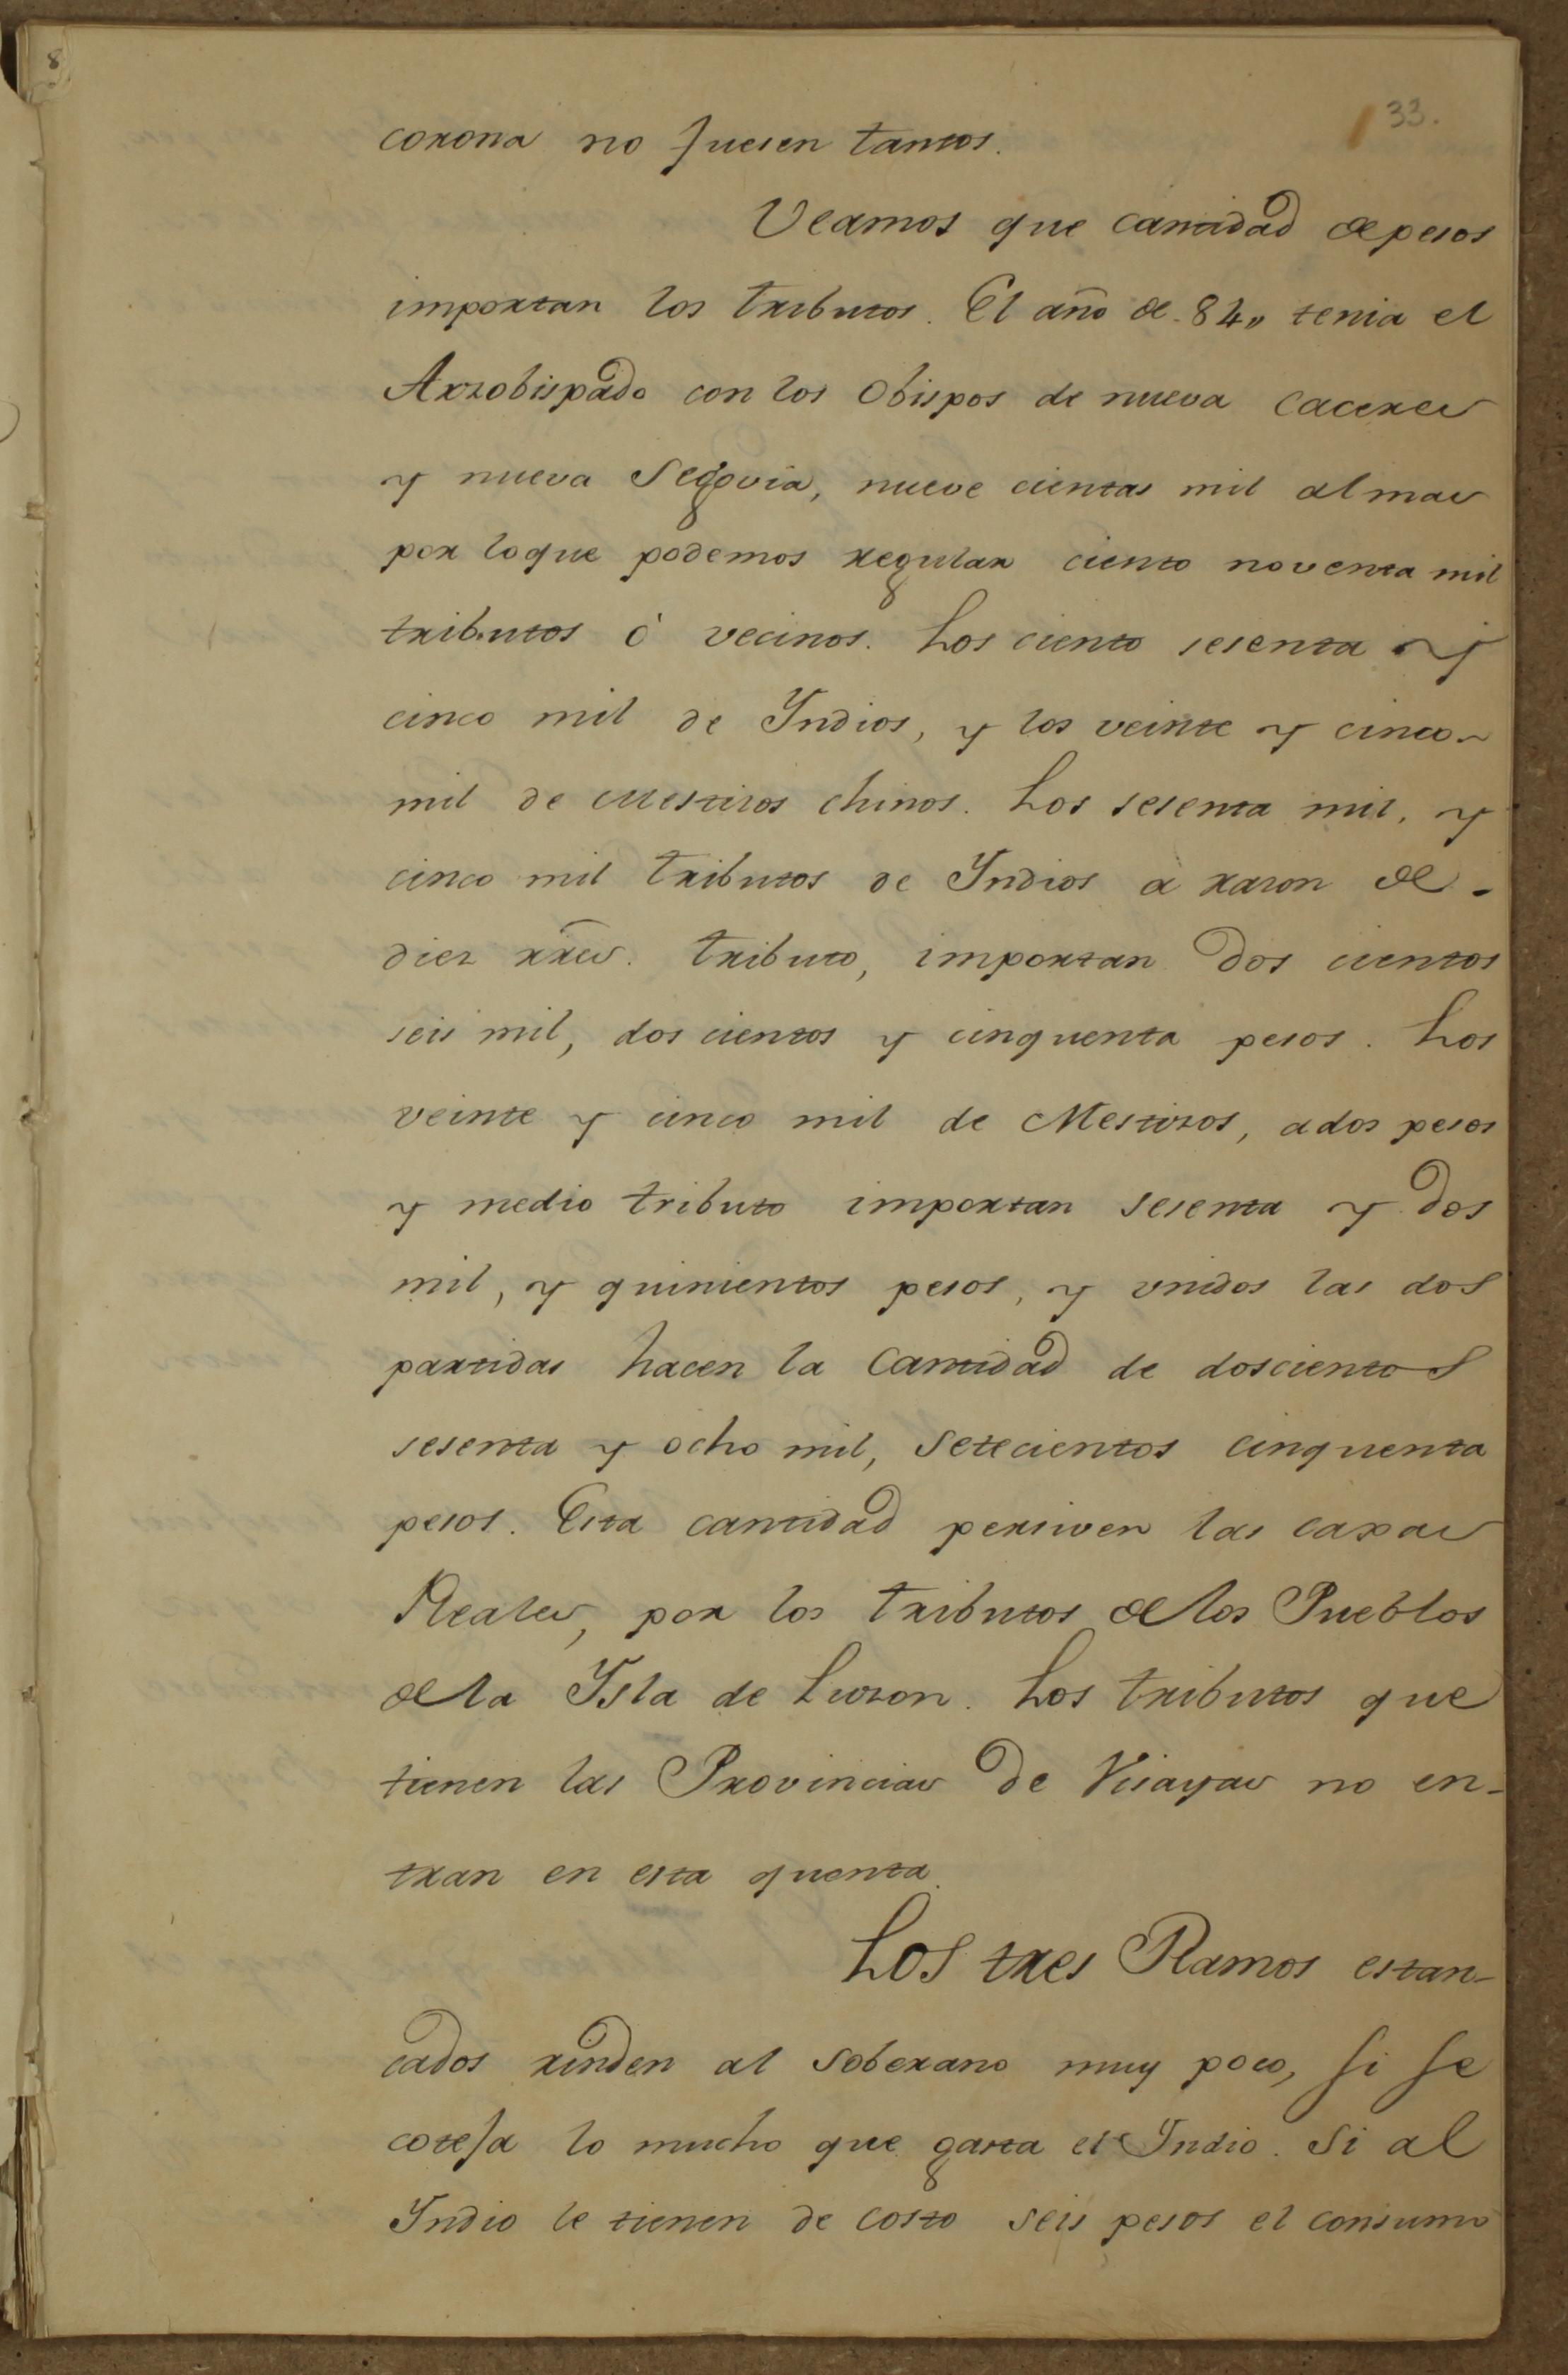 8
33.
corona no fuesen tantos.
Veamos que cantidad de pesos
importan los tributos. El año de 84,, tenia el
Arzobispado con los Obispos de nueva Caceres
y nueva Segovia, nueve cientas mil almas
por loque podemos regular ciento noventa mil
tributos ó vecinos. Los ciento sesenta y
cinco mil de Yndios, y los veinte y cinco
mil de Mestizos chinos. Los sesenta mil, y
cinco mil tributos de Yndios à razon de -
diez rr̃es. tributo, importan dos cientos
seis mil, dos cientos y cinquenta pesos. Los
veinte y cinco mil de Mestizos, ados pesos
y medio tributo importan sesenta y dos
mil, y quinientos pesos, y unidos las dos
partidas hacen la Cantidad de doscientos
sesenta y ocho mil, setecientos cinquenta
pesos. Esta cantidad perciven las caxas
Reales, por los tributos de los Pueblos
de la Ysla de Luzon. Los tributos que
tienen las Provincias de Visayas no en-
tran en esta quenta.
Los tres Ramos estan-
cados rinden al soberano muy poco, si se
coteja lo mucho que gasta el Yndio. Si al
Yndio le tienen de costo seis pesos el consumo